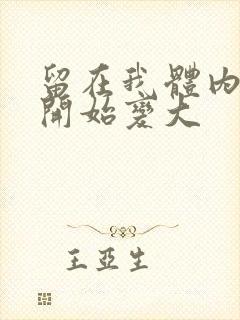 留在我體內
開始變大
王亞生